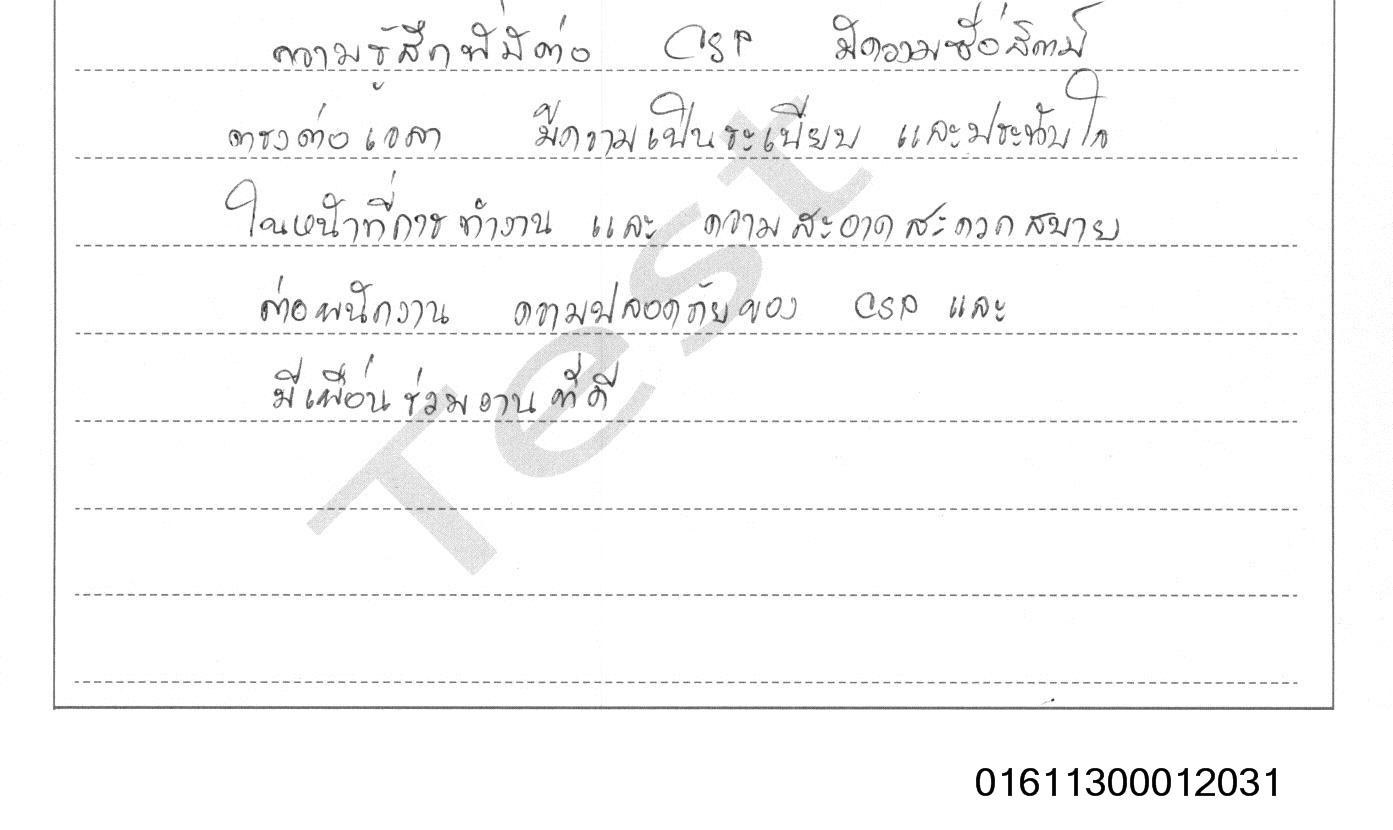 ความรู้สึกที่มีต่อ CSP มีความซื่อสัตย์
ตรงต่อเวลา มีความเป็นระเบียบ และประทับใจ
ในหน้าที่การทำงาน และ ความสะอาดสะดวกสบาย
ต่อพนักงาน ความปลอดภัยของ CSP และ
มีเพื่อนร่วมงานที่ดี
Test
01611300012031